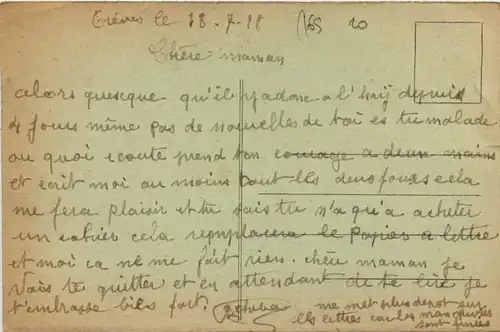 Trèves le 18-7-18 (165 20
Chère maman
alors quesque qu'il y adonc a l'haÿ depuis
4 jours même pas de nouvelles de toi es tu malade
ou quoi ecoute prend ton courage a deux mains
et ecrit moi au moins tout les deux jours cela
me fera plaisir et tu sais tu n'a qu'a acheter
un cahier cela remplacera le papier a lettre
et moi ca ne me fait rien. chère maman je
vais te quitter et en attendant de te lire je
t'embrasse bien fort.
ne met plus depot sur
les lettres car les
sont finies